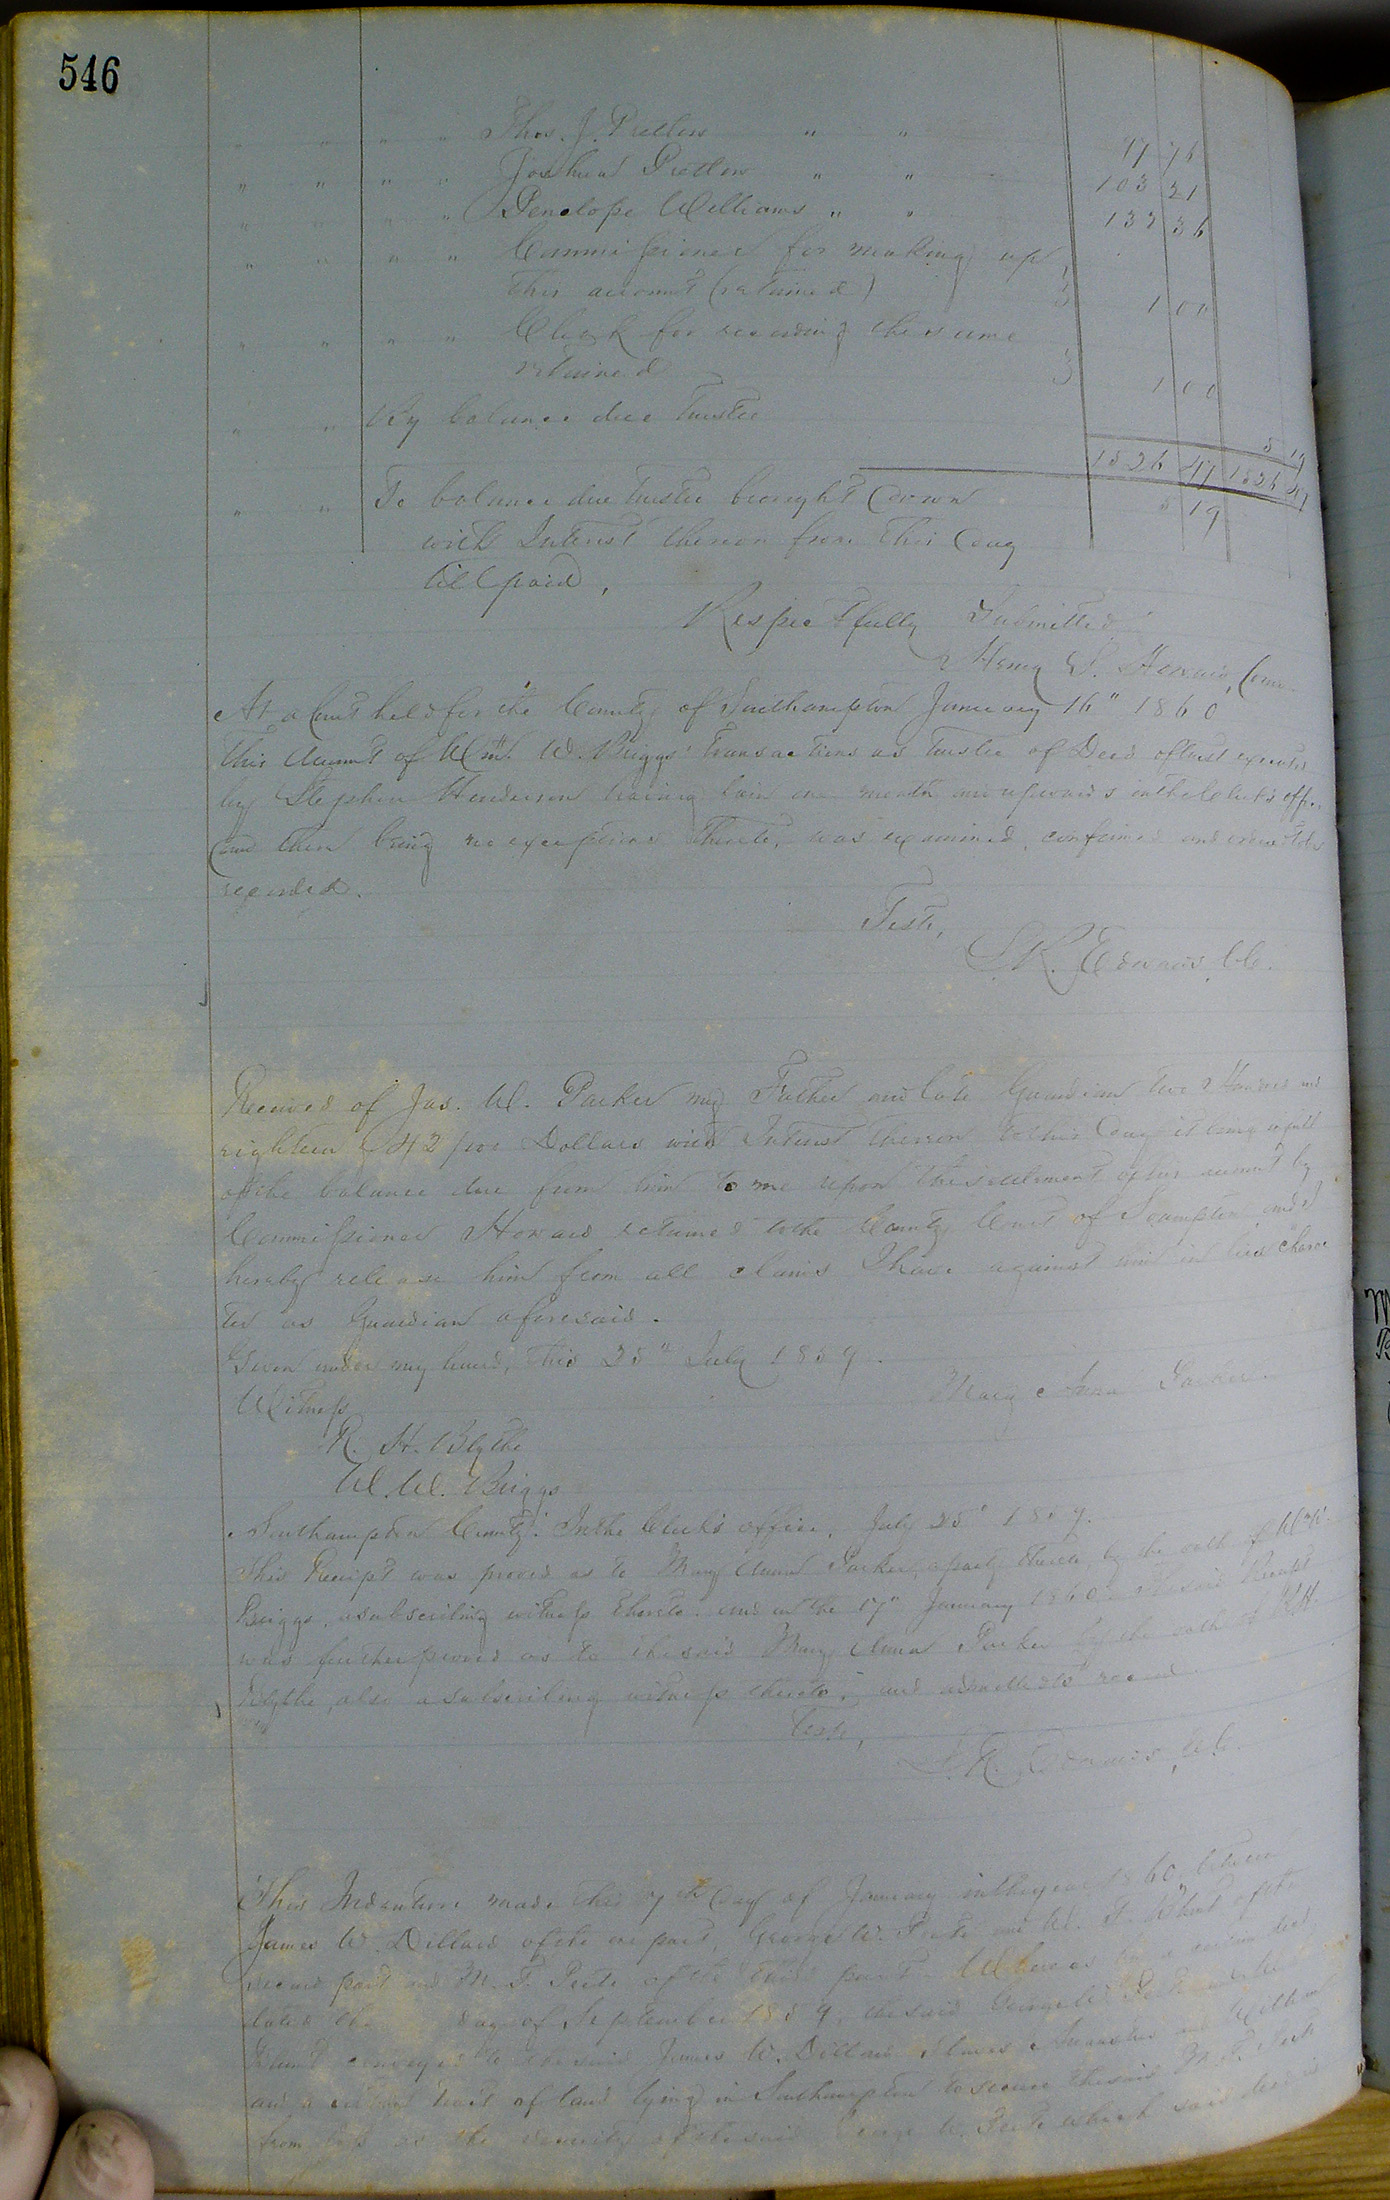 546
" " " " Thos. J. Pretlow " " 97 76
" " " " Joshua Pretlow " " 103 21
" " " " Penelope Williams " " 137 36
" " " " Commissioner for making up
this account (retained) 1 00
" " " " Clerk for recording the same
retained 1 00
" " By balance due Trustee 5 19
1526 47 1526 47
" " To balance due Trustee brought down 5 19
with Interest thereon from this day
till paid,
Respectfully Submitted
Henry S. Howard, Com
At a Court held for the County of Southampton January 16" 1860
This Account of Wm. W. Briggs' transactions as Trustee of Deed of trust executed
by Stephen Henderson having lain one month and upwards in the Clerk's office
and there being no exceptions thereto, was examined, confirmed and ordered to be
recorded.
Teste,
L. R. Edwards Clk.
Received of Jas. W. Parker my Father and late Guardian two Hundred and
eighteen 42/100 Dollars with Interest thereon to this day it being in full
of the balance due from him to me upon the settlement of his account by
Commissioner Howard returned to the County Court of Southampton and I
hereby release him from all claims I have against him in his charac
ter as Guardian aforesaid.
Given under my hand, this 25" July 1859.
Mary Anna Parker.
Witness
R. H. Blythe
W. W. Briggs
Southampton County: In the Clerk's office, July 25" 1859.
This Receipt was proved as to Mary Anna Parker, a party thereto, by the oath of Wm. W.
Briggs, a subscribing witness thereto. and on the 17" January 1860 the said Receipt
was further proved as to the said Mary Anna Parker by the oath of R. H.
Blythe, also a subscribing witness thereto, and admitted to record.
Teste,
L. R. Edwards, Clk.
This Indenture made this 17th day of January in the year 1860, between
James W. Dillard of the one part, George W. Peete and W. T. Blunt of the
second part and M. T. Peete of the third part. Whereas by a certain deed
dated the day of September 1859, the said George W. Peete and
Blunt conveyed to the said James W. Dillard slaves and William
and a certain tract of land lying in Southampton to secure the said M. T. Peete
from loss as the security of the said George W. Peete which said deed is